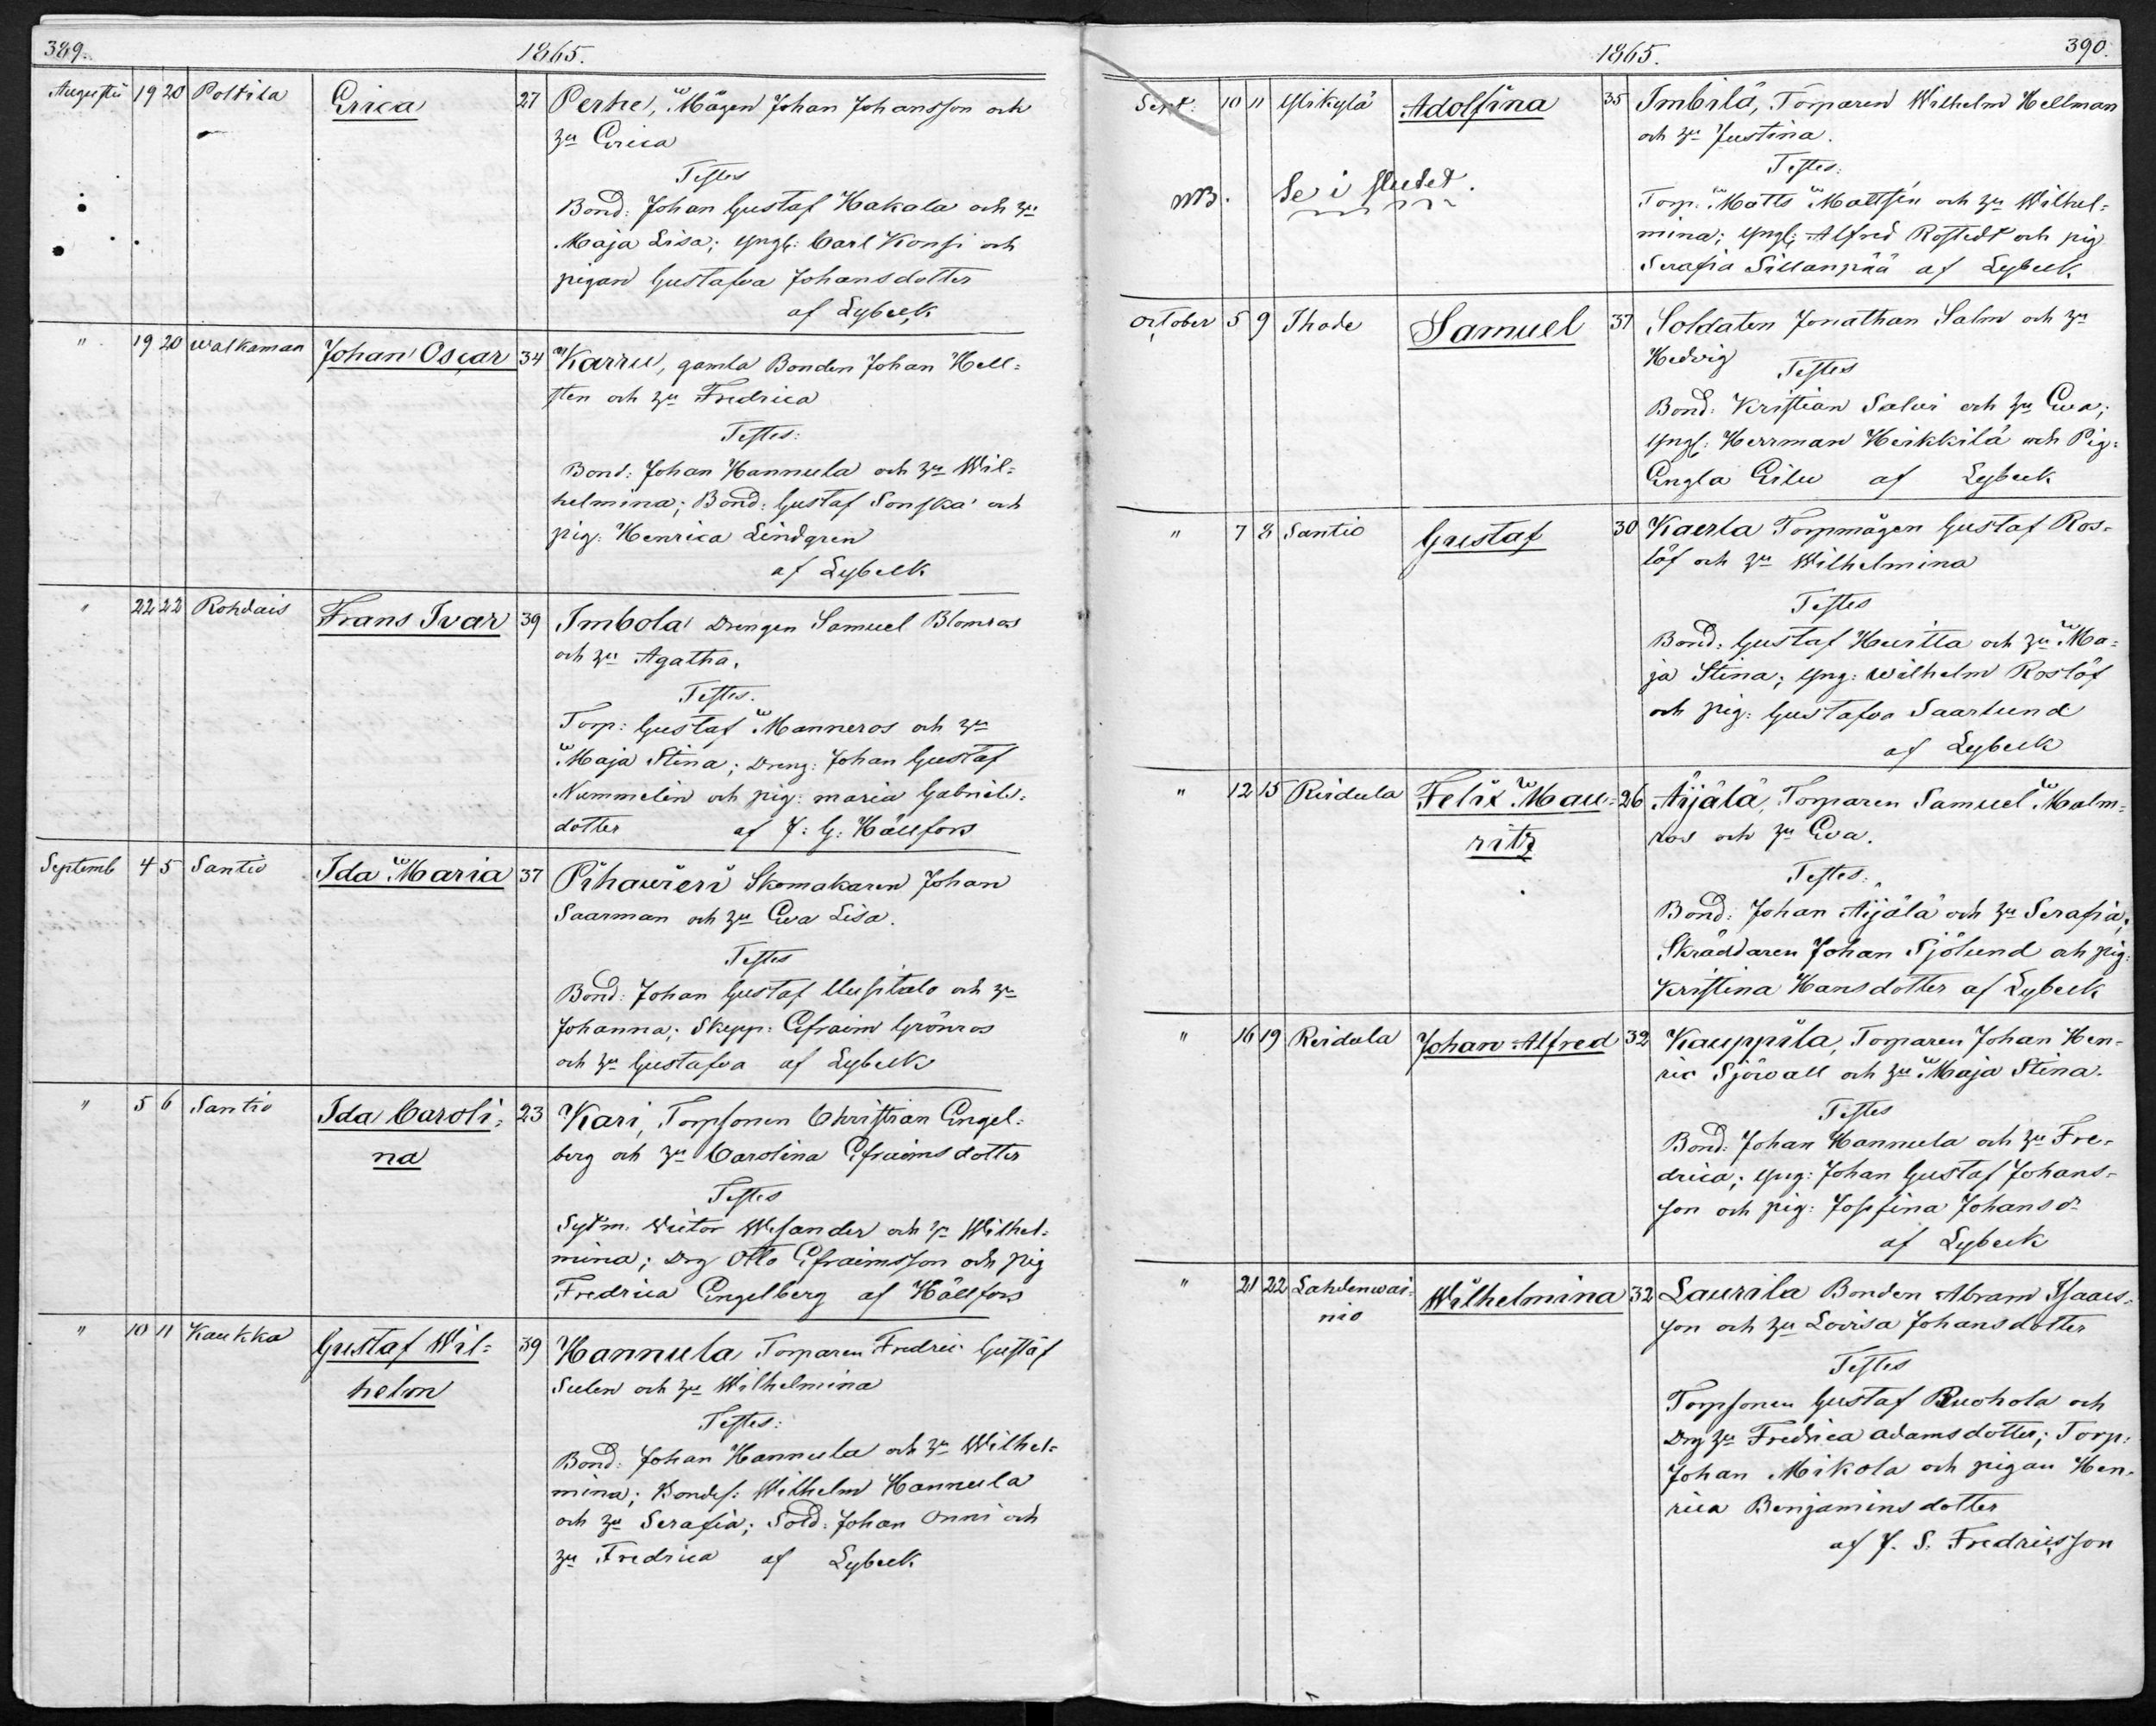 389.
1865.
Augusti 19 20 Poltila Erica 27 Pertre, Mågen Johan Johansson och
hu Erica
Testes
Bond: Johan Gustaf Hakala och hu
Maja Lisa; yngl: Carl Konsi och
pigan Gustafva Johansdotter
af Lybeck
" 19 20 Walkaman Johan Oscar 34 Karru, gamla Bonden Johan Hell=
sten och hu Fredrica
Testes:
Bond: Johan Hannula och hu Wil=
helmina; Bond: Gustaf Sonska och
pig: Henrica Lindgren
af Lybeck
" 22 22 Rohdais Frans Ivar 39 Imbola Drengen Samuel Blomros
och hu Agatha.
Testes.
Torp: Gustaf Manneros och hu
Maja Stina; Dreng: Johan Gustaf
Nummelin och pig: Maria Gabriels=
dotter af J: G: Hällfors
Septemb 4 5 Santio Ida Maria 37 Pihawieri Skomakaren Johan
Saarman och hu Eva Lisa.
Testes
Bond: Johan Gustaf Uusitalo och hu
Johanna; Skepp: Efraim Grönros
och hu Gustafva af Lybeck
" 5 6 Santio Ida Caroli= 23 Kari, Torpsonen Christian Engel=
na berg och hu Carolina Efraimsdotter
Testes
Sytm: Victor Wesander och hu Wilhel=
mina; Drg Otto Efraimsson och pig
Fredrica Engelberg af Hällfors
" 10 11 Kaukka Gustaf Wil= 39 Hannula Torparen Fredric Gustaf
helm Sulen och hu Wilhelmina
Testes:
Bond: Johan Hannula och hu Wilhel=
mina; Bondes: Wilhelm Hannula
och hu Serafia; Sold: Johan Onni och
hu Fredrica af Lybeck
1865.
390.
Sept: 10 11 Ylikylä Adolfina 35 Imbilä, Torparen Wilhelm Hellman
och hu Justina.
Testes:
NB. Se i slutet. Torp: Matts Mattsén och hu Wilhel=
mina; yngl: Alfred Rostedt och pig
Serafia Sillanpää af Lybeck
October 5 9 Thode Samuel 37 Soldaten Jonathan Salm och hu
Hedvig
Testes
Bond: Kristian Salvi och hu Eva;
yngl: Herrman Heikkilä och Pig:
Engla Eilu af Lybeck
" 7 8 Santio Gustaf 30 Kaerla Torpmågen Gustaf Ros=
löf och hu Wilhelmina
Testes
Bond: Gustaf Huitta och hu Ma=
ja Stina; yng: Wilhelm Roslöf
och pig: Gustafva Saarlund
af Lybeck
" 12 15 Reidula Felix Mau= 26 Äijälä, Torparen Samuel Malm=
ritz ros och hu Eva.
Testes:
Bond: Johan Äijälä och hu Serafia;
Skräddaren Johan Sjölund och pig:
Kristina Hansdotter af Lybeck
" 16 19 Reidula Johan Alfred 32 Kauppila, Torparen Johan Hen=
ric Sjöwall och hu Maja Stina.
Testes
Bond: Johan Hannula och hu Fre=
drica; yng: Johan Gustaf Johans=
son och pig: Josefina Johansdr
af Lybeck
" 21 22 Lahdenwai= Wilhelmina 32 Laurila Bonden Abram Isaacs=
nio son och hu Lovisa Johansdotter
Testes
Torpsonen Gustaf Ruohola och
Drg hu Fredrica Adamsdotter; Torp:
Johan Mikola och pigan Hen=
rica Benjaminsdotter
af J. S. Fredricsson